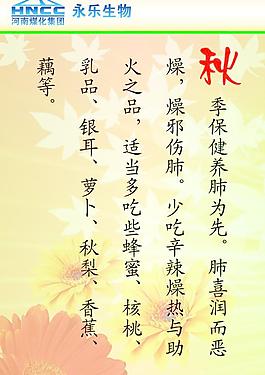 HNCC
河南煤化集团
永乐生物
秋
季保健养肺为先。肺喜润而恶
燥，燥邪伤肺。少吃辛辣燥热与助
火之品，适当多吃些蜂蜜、核桃、
乳品、银耳、萝卜、秋梨、香蕉、
藕等。